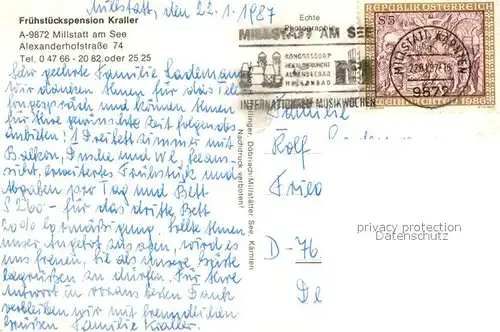 Millstatt, den 22.1.1987
Frühstückspension Kraller
A-9872 Millstatt am See
Alexanderhofstraße 74
Tel. 0 47 66 - 20 82 oder 25 25
Sehr geehrte Familie Lademann
wir danken Ihnen für das Tele
fongespräch und können Ihnen
für Ihre gewünschte Zeit folgendes
anbieten! 1 Dreibettzimmer mit
Balkon, Dusche und WC, Seeaus-
sicht, erweitertes Frühstück und
Abgaben pro Tag und Bett
S 260.- für das dritte Bett
20% Ermäßigung. Sollte Ihnen
unser Angebot zusagen, wird es
uns freuen, Sie als unsere Gäste
begrüßen zu dürfen. Für Ihre
Antwort in voraus besten Dank
verbleiben wir mit freundlichen
Grüßen Familie Kraller.
Echte
Photographie
MILLSTATT AM SEE
KONGRESSDORF
HALLENBAD
INTERNATIONALE MUSIKWOCHEN
REPUBLIK ÖSTERREICH
S 5
WEIHNACHTEN 1986
MILLSTATT, KÄRNTEN
9872
Döbriach-Millstätter See, Kärnten
Nachdruck verboten!
Familie
Rolf
Fried
D-76
De
privacy protection
Datenschutz